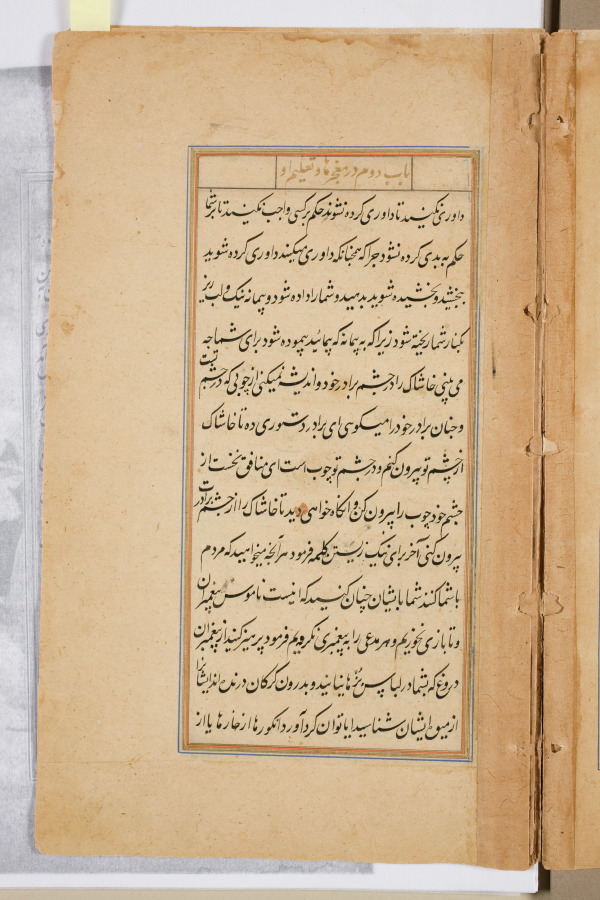 باب دوم در معجزها و تعلیم او
داوری نکنید تا داوری کرده نشوند حکم بر کسی واجب نکنید تا بر شما
حکم به بدی کرده نشود چرا که همچنانکه داوری میکنند داوری کرده شوید
ببخشید و بخشیده شوید بدهید و شما را داده شود و پیمانه نیک و لب ریز
بکنار شما ریخته شود زیرا که به پیمانه که پیمائید پیموده شود برای شما چه
می بینی خاشاک را در چشم برادر خود و اندیشه نمیکنی از چوبی که در چشم تست
و چنان برادر خود را میگوئی ای برادر دستوری ده تا خاشاک
از چشم تو بیرون کنم و در چشم تو چوب است ای منافق نخست از
چشم خود چوب را بیرون کن و آنگاه خواهی دید تا خاشاک را از چشم برادر
بیرون کنی آخر برای نیک زیستن کلمه فرمود هر آنچه میخواهید که مردم
با شما کنند شما با ایشان چنان کنید که اینست ناموس پیغمبران
و تا بازی نخوریم و هر مدعی را به پیغمبری نگرویم فرمود پرهیز کنید از پیغمبران
دروغ که بشما در لباس بزها بیایند و بدرون گرگان درنده اند ایشانرا
از میوۀ ایشان شناسید ایا توان گرد آورد انگورها از خارها یا از